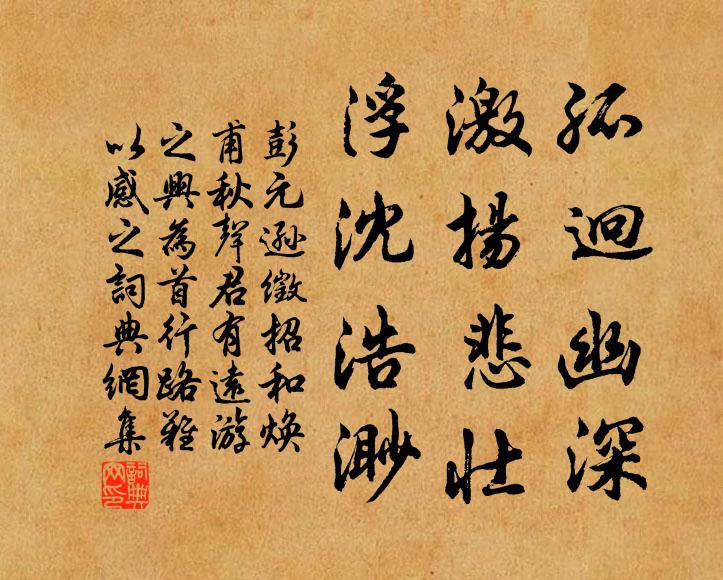 孤迥幽深
激揚悲壯
浮沈浩渺
彭元遜徵招和煥
甫秋聲君有遠游
之興為首行路難
以感之詞典網集
詞典
网印